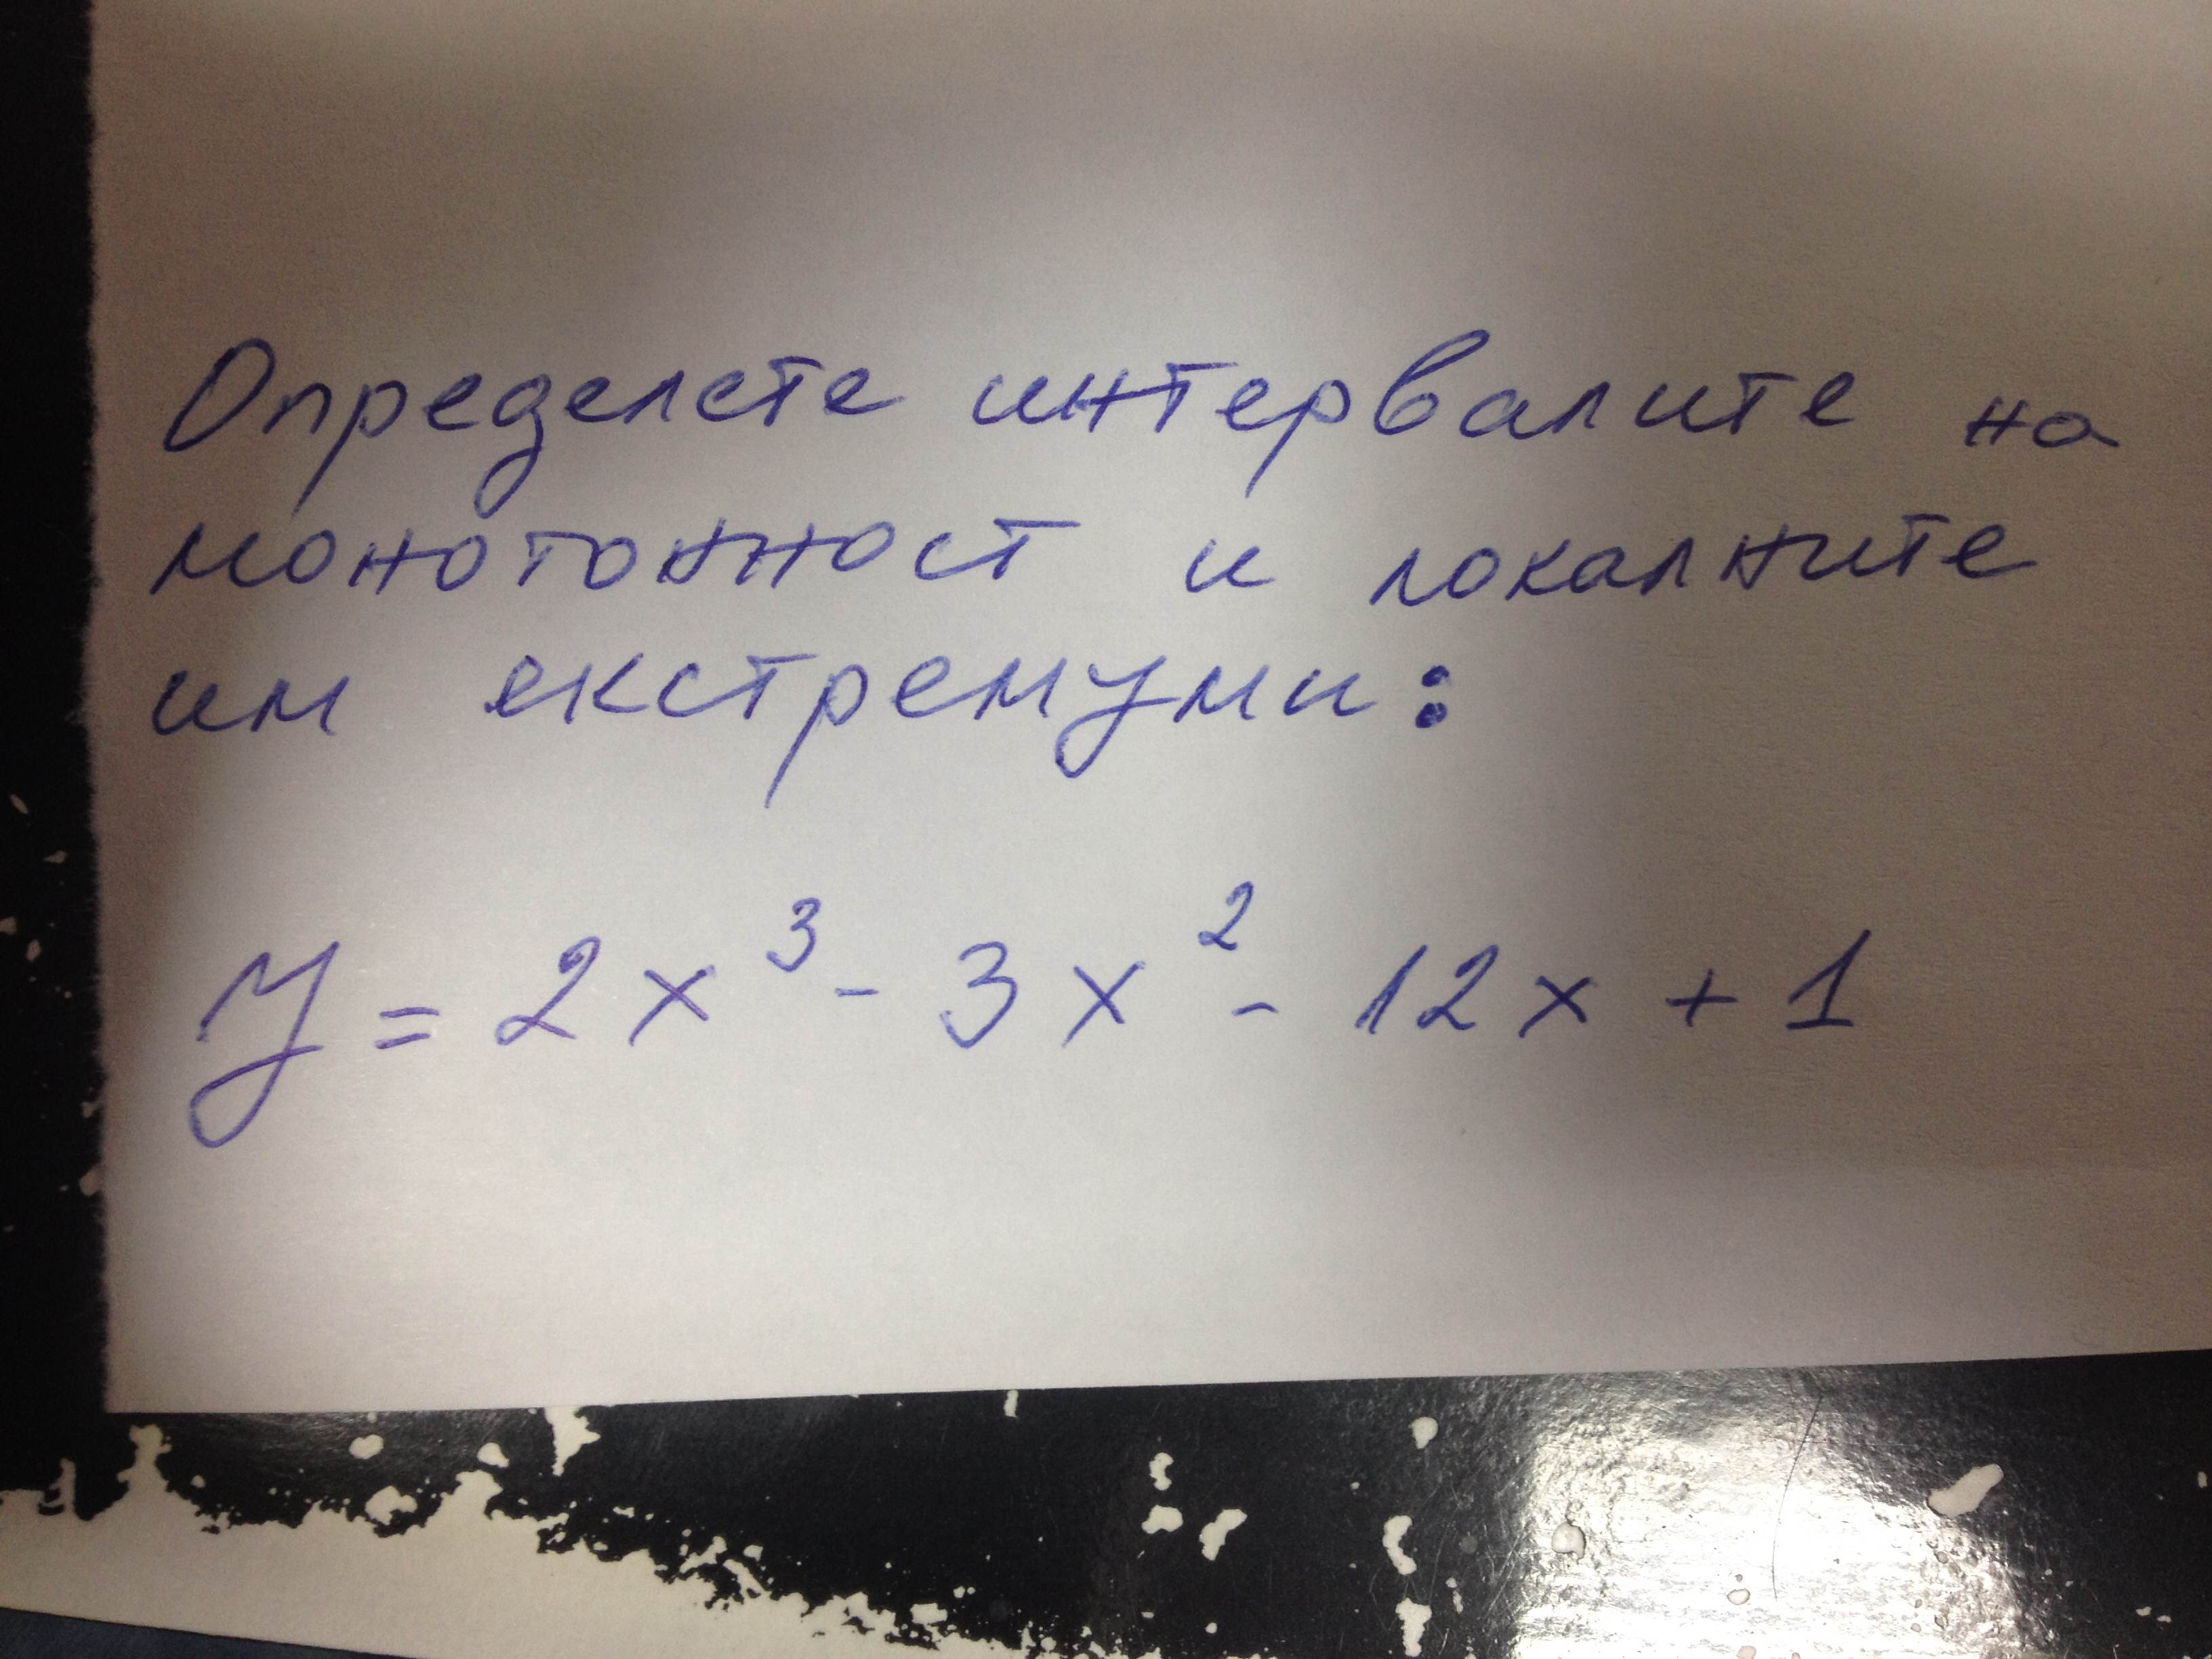 Определете интервалите на
монотонност и локалните
им екстремуми:
y = 2x³ - 3x² - 12x + 1